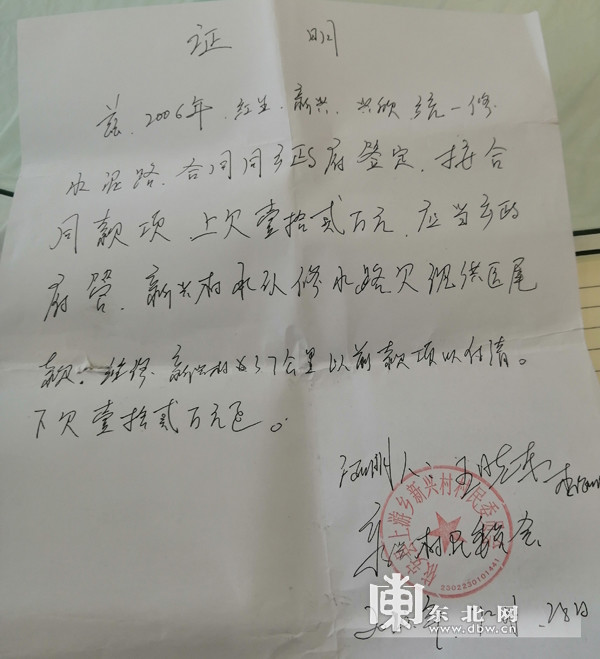 证 明
兹.2006年.红生.新兴.兴欣.统一修
水泥路.合同同乡政府签定.按合
同款项上欠壹拾贰万元.应当乡政
府管.新兴村承认修水路欠
款.新兴村 3.7公里以前款项以付清。
下欠壹拾贰万元正。
证明人:王
依安县上游乡新兴村村民委员会
新兴村民委员会
2302230101441
年 28日
东北网
www.dbw.cn